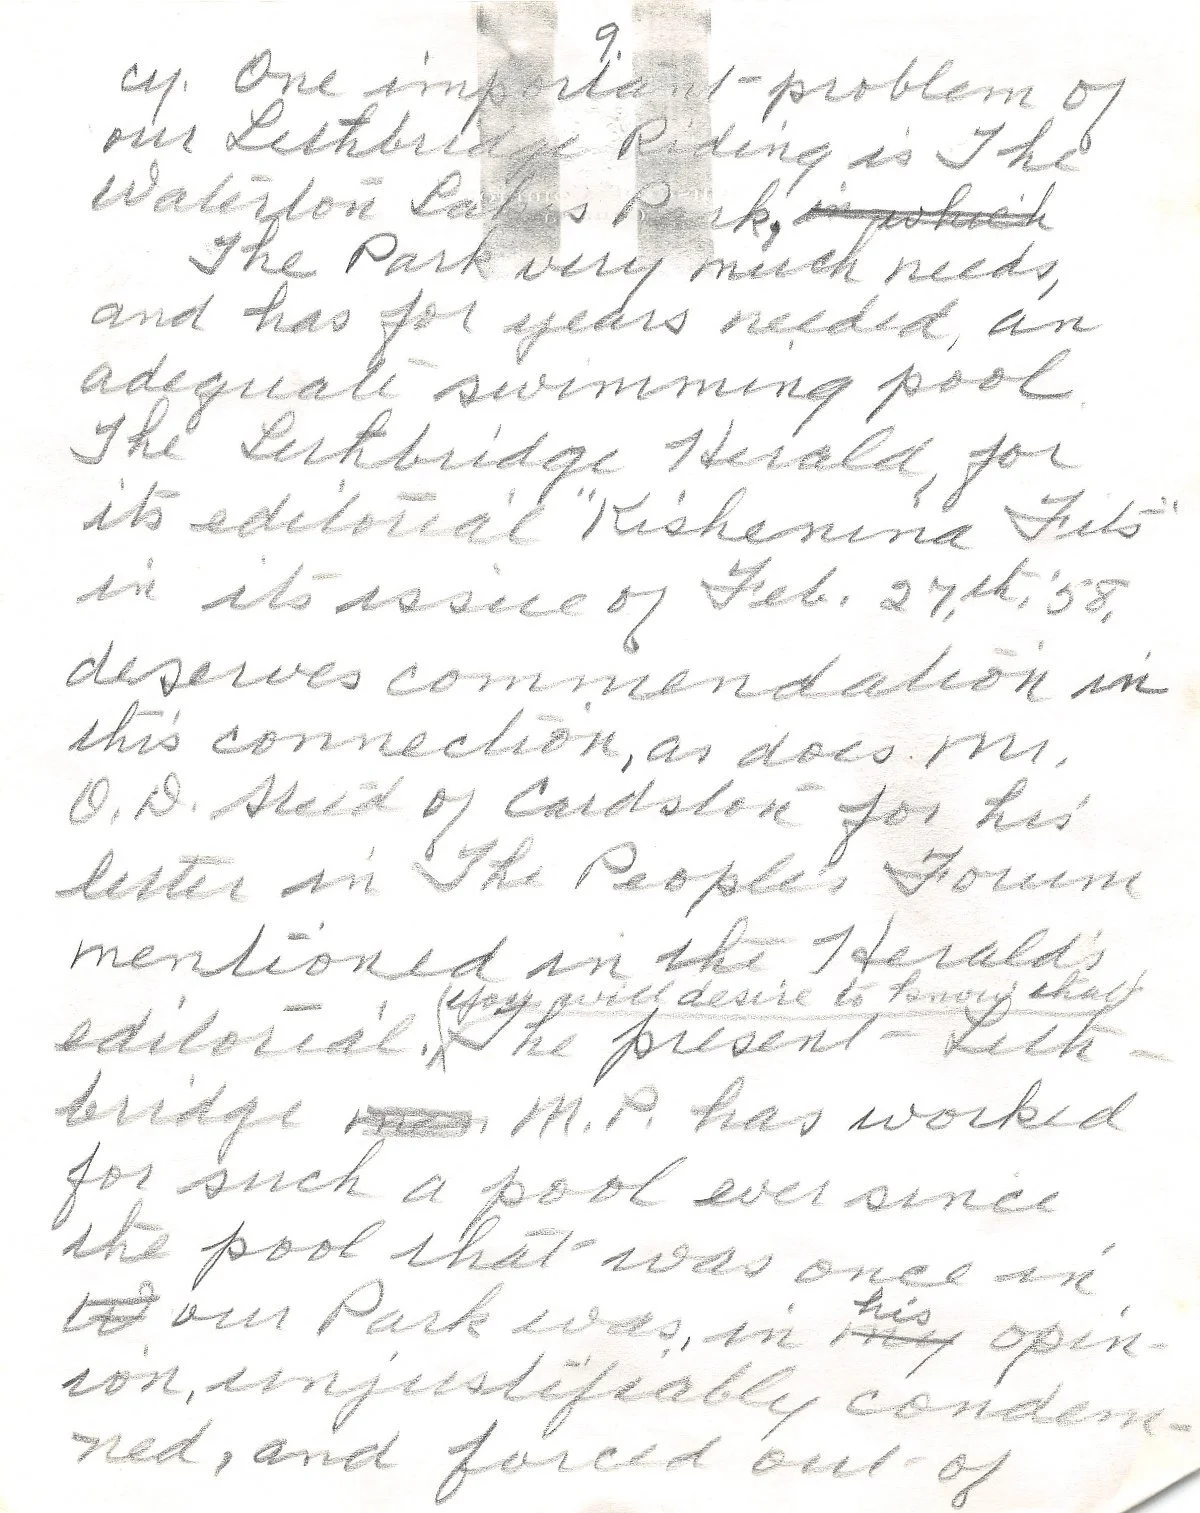 9.
cy. One important problem of
our Lethbridge Riding is The
Waterton Lakes Park, in which
The Park very much needs,
and has for years needed, an
adequate swimming pool.
The Lethbridge Herald, for
its editorial "Kishenina Fits"
in its issue of Feb. 27th, '58,
deserves commendation in
this connection, as does Mr.
O. D. of Cardston for his
letter in The People's Forum
mentioned in the Herald's
(you will desire to know that)
editorial. The present Leth-
bridge M.P. has worked
for such a pool ever since
the pool that was once in
our Park was, in my his opin-
ion, unjustifiably condem-
ned, and forced out of